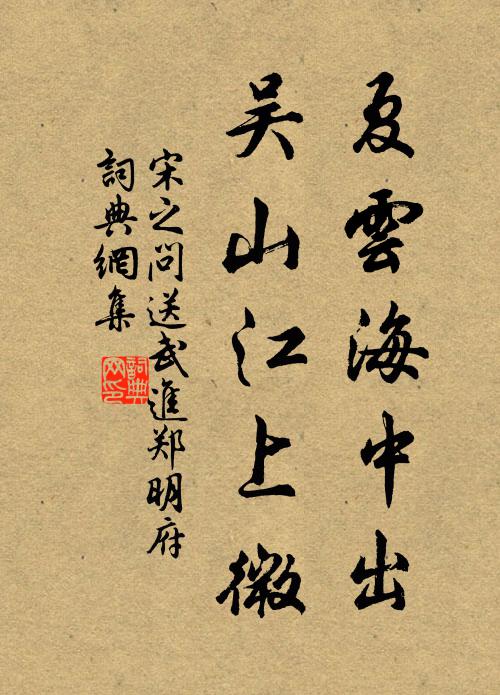 夏雲海中出
吴山江上微
宋之问送武進郑明府
詞典網集
詞典
网印